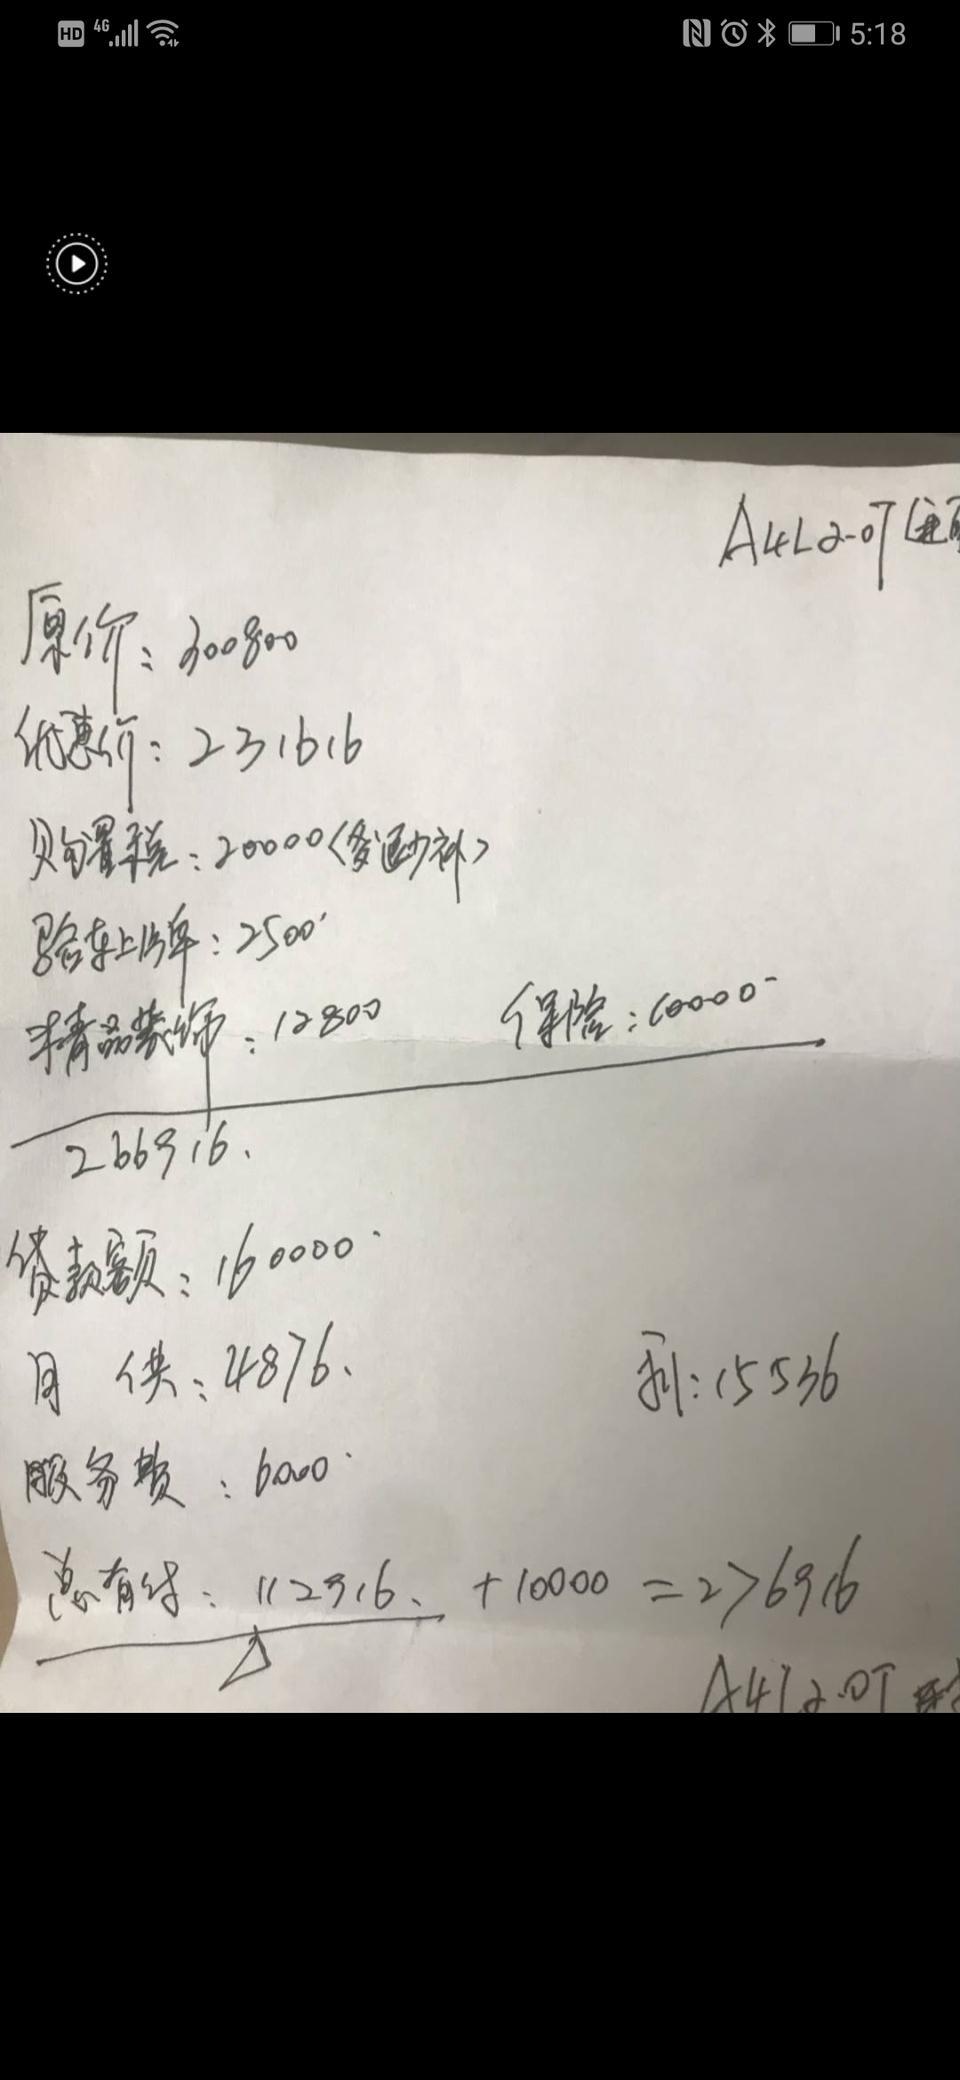 HD 4G 5:18
A4L2.0T
原价：300800
优惠价：231616
购置税：20000（多退少补）
验车上牌：2500
精品装饰：12800 保险：10000
266916.
贷款额：160000
月供：4876. 利：15536
服务费：6000
总首付：112916. +10000 = 276916
A4L2.0T